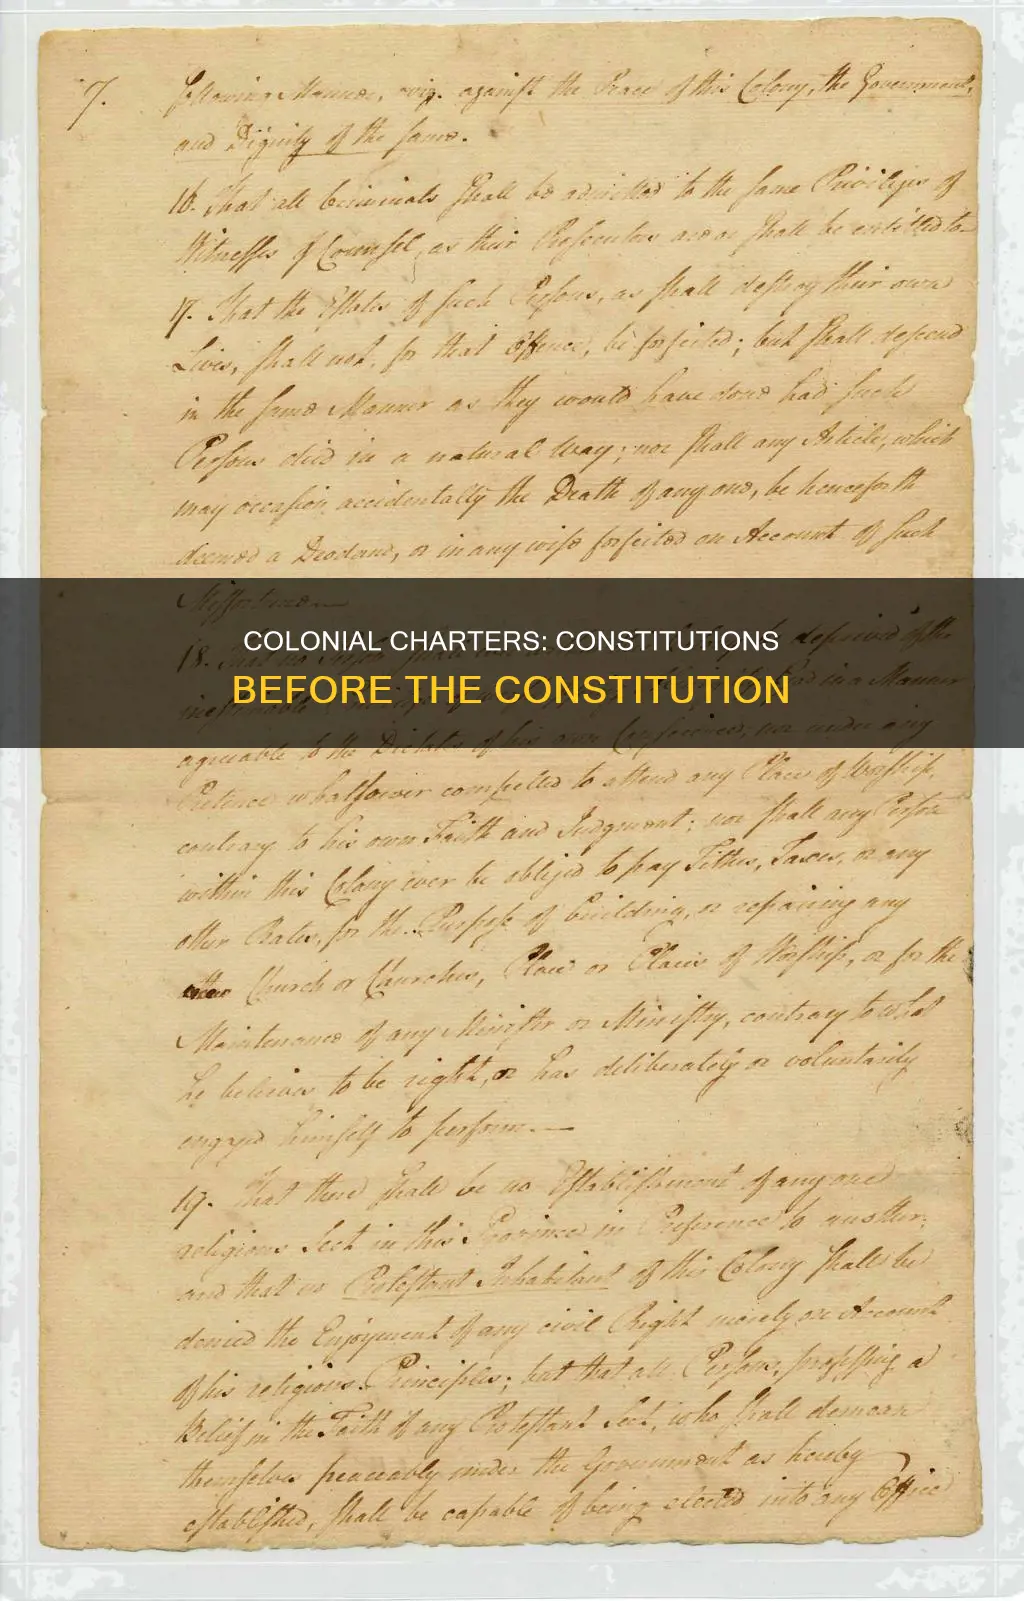 7.
following Manner, viz. against the Peace of this Colony, the Government,
and Dignity of the same.
16. That all Criminals shall be admitted to the same Privileges of
Witnesses & Counsel, as their Prosecutors are or shall be entitled to
17. That the Estates of such Persons, as shall destroy their own
Lives, shall not, for that Offence, be forfeited; but shall descend
in the same Manner as they would have done had such
Persons died in a natural Way; nor shall any Article, which
may occasion accidentally the Death of any one, be henceforth
deemed a Deodand, or in any wise forfeited on Account of such
Misfortune.—
18. deprived of the
in a Manner
COLONIAL CHARTERS: CONSTITUTIONS
BEFORE THE CONSTITUTION
agreeable to the Dictates of his own Conscience; nor under any
Pretence whatsoever compelled to attend any Place of Worship,
contrary to his own Faith and Judgment; nor shall any Person
within this Colony ever be obliged to pay Tithes, Taxes, or any
other Rates, for the Purpose of building, or repairing any
Church or Churches, Place or Places of Worship, or for the
Maintenance of any Minister or Ministry, contrary to what
he believes to be right, or has deliberately or voluntarily
engaged himself to perform.—
19. That there shall be no Establishment of any one
religious Sect in this Province in Preference to another;
and that no Protestant Inhabitant of this Colony shall be
denied the Enjoyment of any civil Right merely on Account
of his religious Principles; but that all Persons, professing a
Belief in the Faith of any Protestant Sect, who shall demean
themselves peaceably under the Government as hereby
established, shall be capable of being elected into any Office